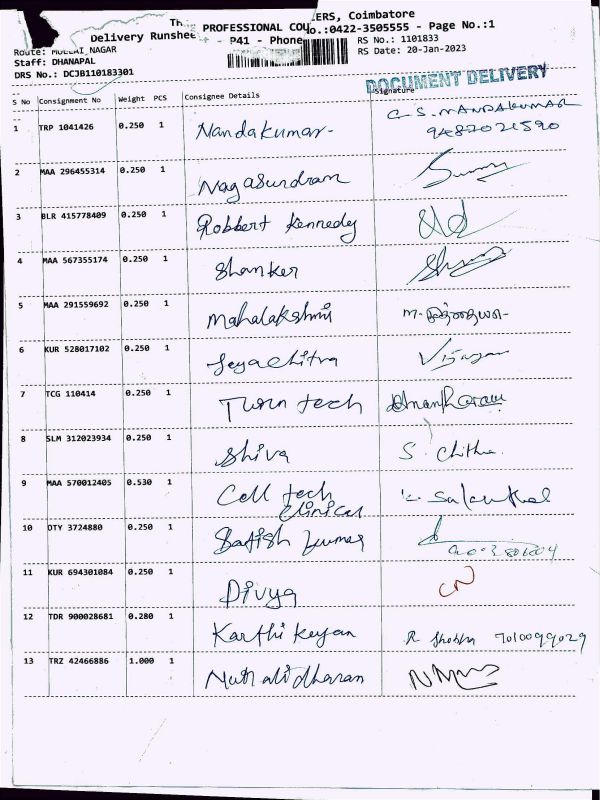 Th PROFESSIONAL COU ERS, Coimbatore
Delivery Runshee - P41 - Phone o.:0422-3505555 - Page No.:1
Route: MULLAI NAGAR RS No.: 1101833
Staff: DHANAPAL RS Date: 20-Jan-2023
DRS No.: DCJB110183301
DOCUMENT DELIVERY
S No Consignment No Weight PCS Consignee Details Signature
1 TRP 1041426 0.250 1 Nandakumar- C. S. NANDAKUMAR
9482021590
2 MAA 296455314 0.250 1 Nagasundram
3 BLR 415778409 0.250 1 Robbert Kennedy
4 MAA 567355174 0.250 1 Shanker
5 MAA 291559692 0.250 1 Mahalakshmi
6 KUR 528017102 0.250 1 Jeyachitra
7 TCG 110414 0.250 1 Turn tech
8 SLM 312023934 0.250 1 Shiva S. Chithra
9 MAA 570012405 0.530 1 Cell tech
Clinical
10 OTY 3724880 0.250 1 Satish kumar
11 KUR 694301084 0.250 1 Divya CN
12 TDR 900028681 0.280 1 Karthikeyan R Shobha 7010099029
13 TRZ 42466886 1.000 1 Muralidharan